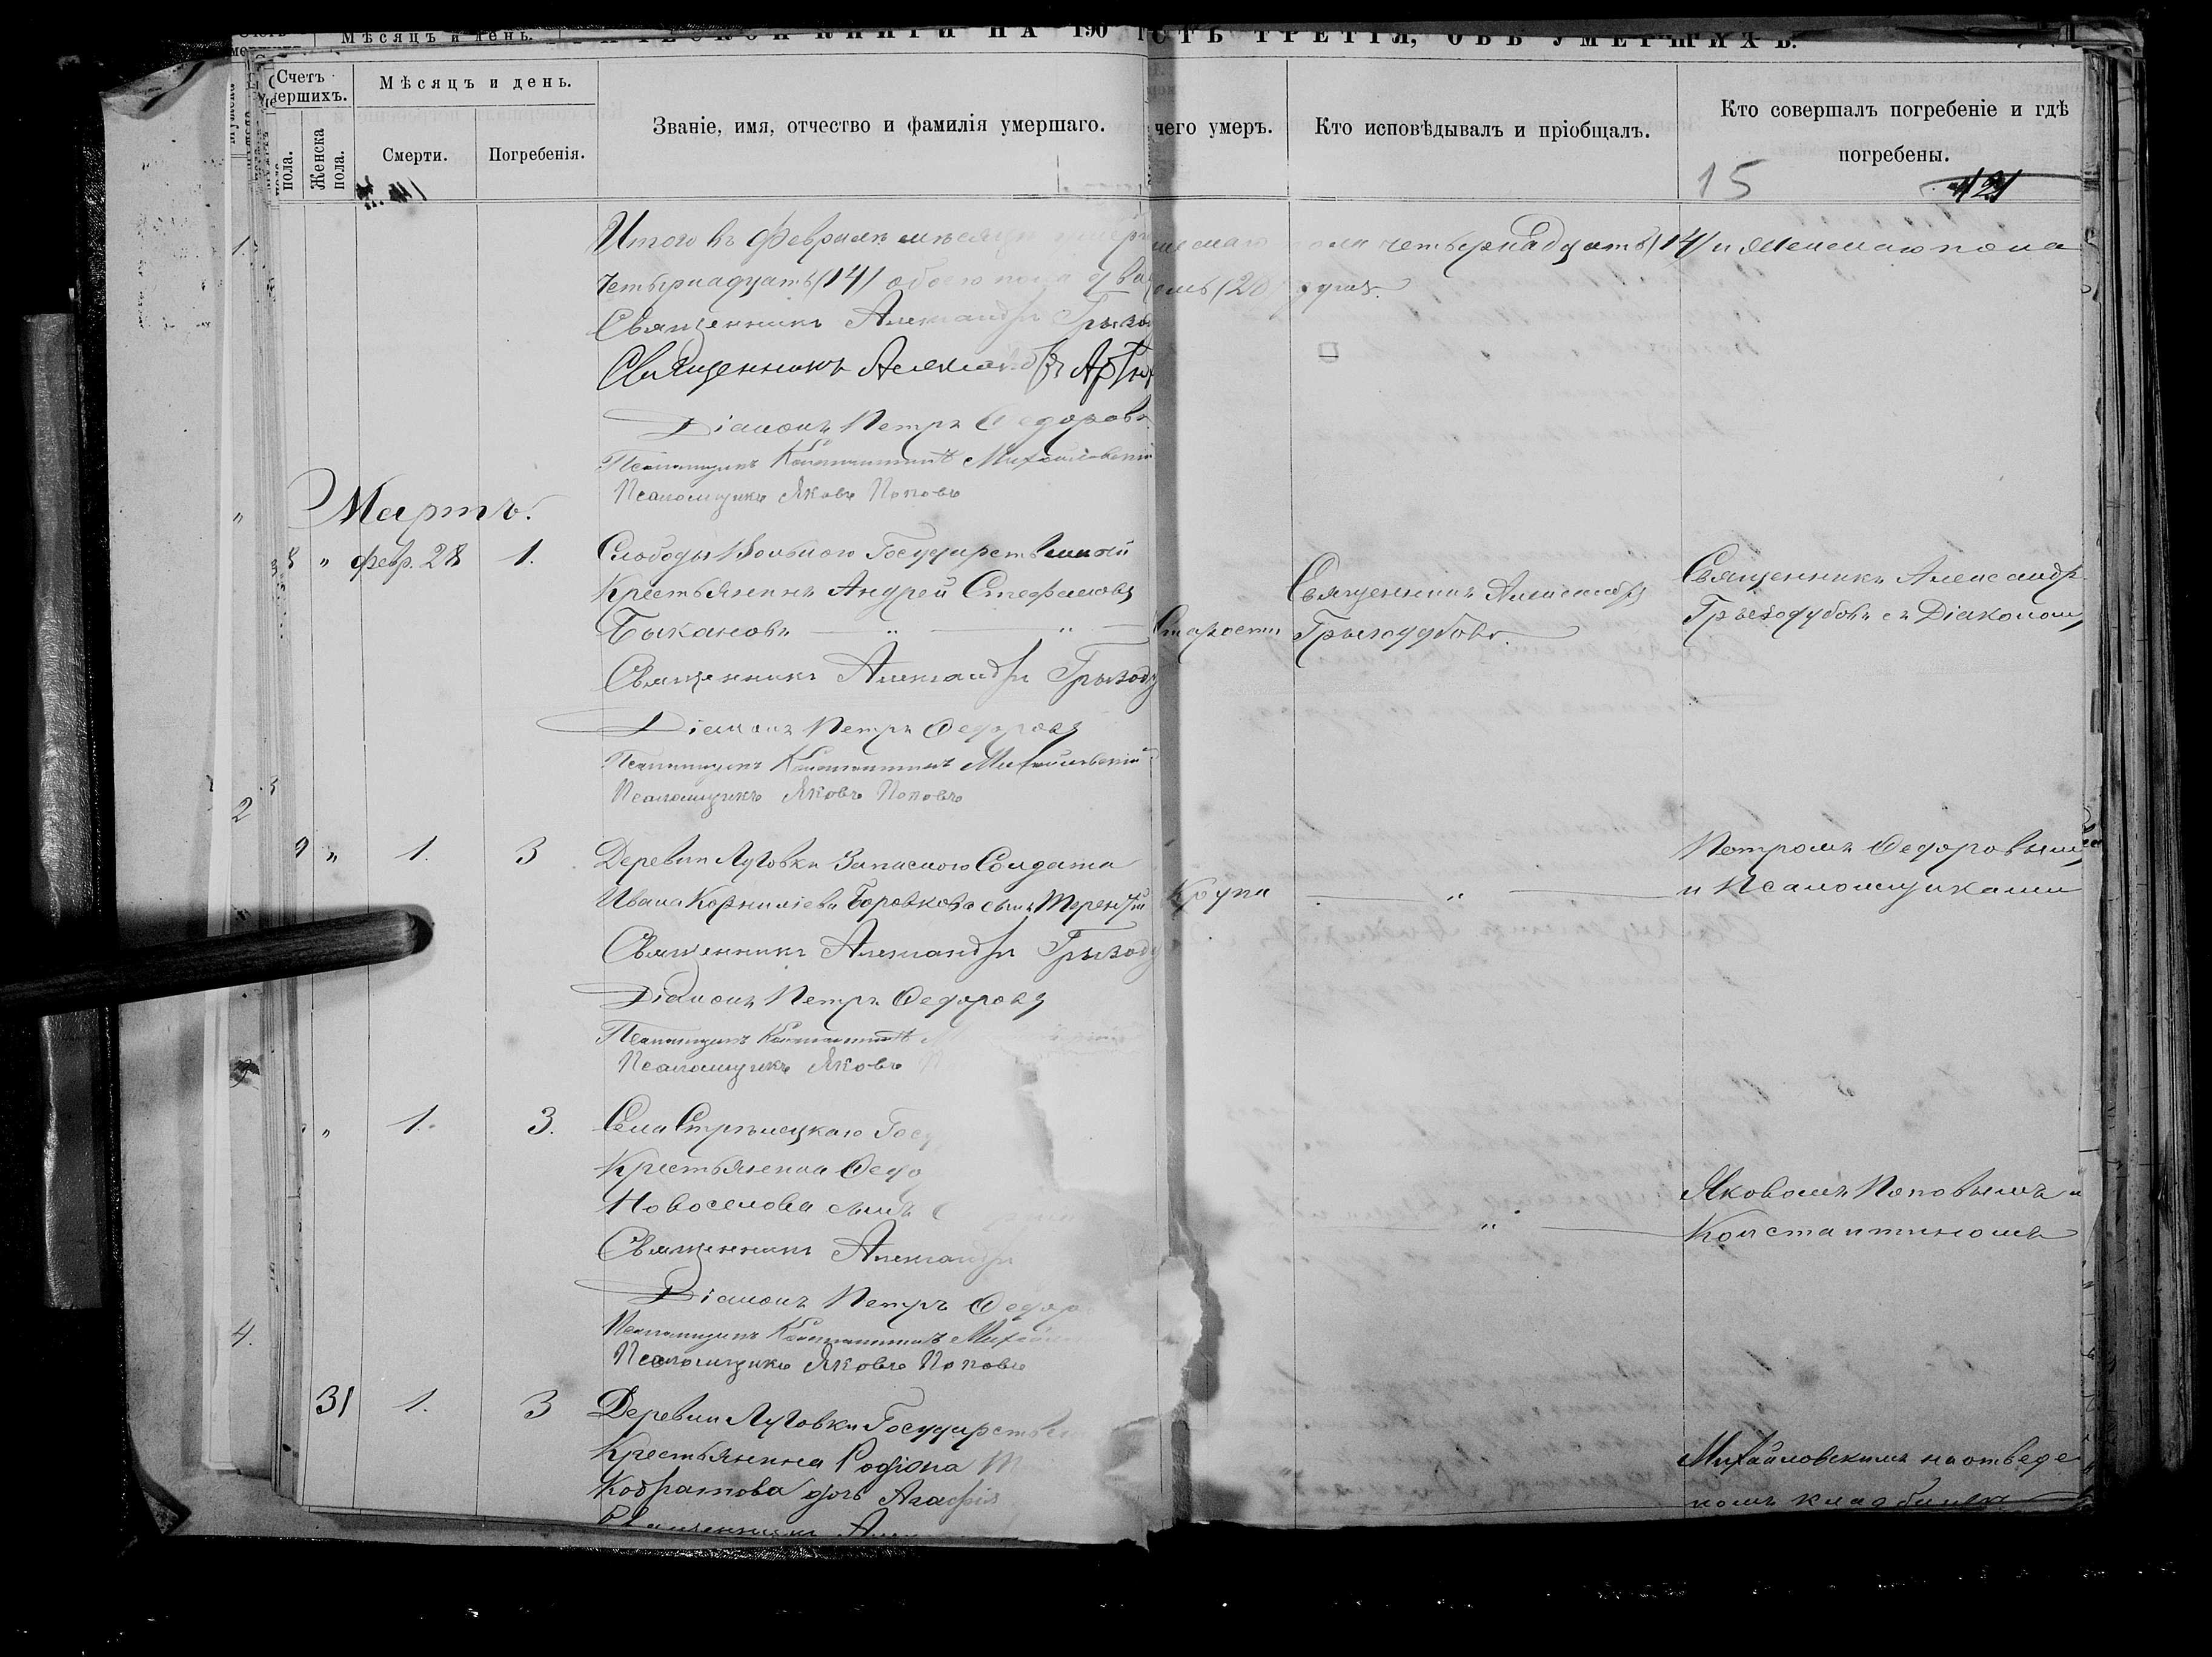 Мѣсяцъ и день.
КНИГИ НА 190
СТЬ ТРЕТІЯ, ОБЪ УМЕРШИХЪ.
Счетъ
ершихъ.
Мѣсяцъ и день.
Званіе, имя, отчество и фамилія умершаго.
чего умеръ.
Кто исповѣдывалъ и пріобщалъ.
Кто совершалъ погребеніе и гдѣ
погребены.
пола.
Женска
пола.
Смерти.
Погребенія.
15
Итого въ Февралѣ мѣсяцѣ
четырнадцать (14) и женскаго пола
четырнадцать (14) обоего пола
душъ.
Священникъ Александръ Грызод
Священникъ Александръ
Діаконъ Петръ Федоровъ
Псаломщикъ Константинъ Михайловскій
Псаломщикъ Яковъ Поповъ
Мартъ.
8 " февр. 28 1.
Слободы Государственной
Крестьянинъ Андрей Стефановъ
Быкановъ
Старости
Священникъ Александръ
Грызодубовъ.
Священникъ Александр
Грызодубовъ съ Діакономъ
Священникъ Александръ Грызоду
Діаконъ Петръ Федоровъ
Псаломщикъ Константинъ Михайловскій
Псаломщикъ Яковъ Поповъ
9 " 1. 3
Деревни Луговки Запаснаго Солдата
Ивана Корниліева Боровкова сынъ Терентій
Крупа
"
Петромъ Федоровымъ
и Псаломщиками
Священникъ Александръ Грызоду
Діаконъ Петръ Федоровъ
Псаломщикъ Константинъ
Псаломщикъ Яковъ
" 1. 3.
Села Стрѣлецкаго Госу
Крестьянина Федо
Новоселова сынъ
"
Яковомъ Поповымъ и
Константиномъ
Священникъ Александръ
Діаконъ Петръ Федоро
Псаломщикъ Константинъ Михай
Псаломщикъ Яковъ Поповъ
31 1. 3
Деревни Луговки Государствен
Крестьянина Родіона
Кодратова дочь Агафія
Священникъ Алек
Михайловскимъ на отведен
номъ кладбищѣ
1.
2
4.